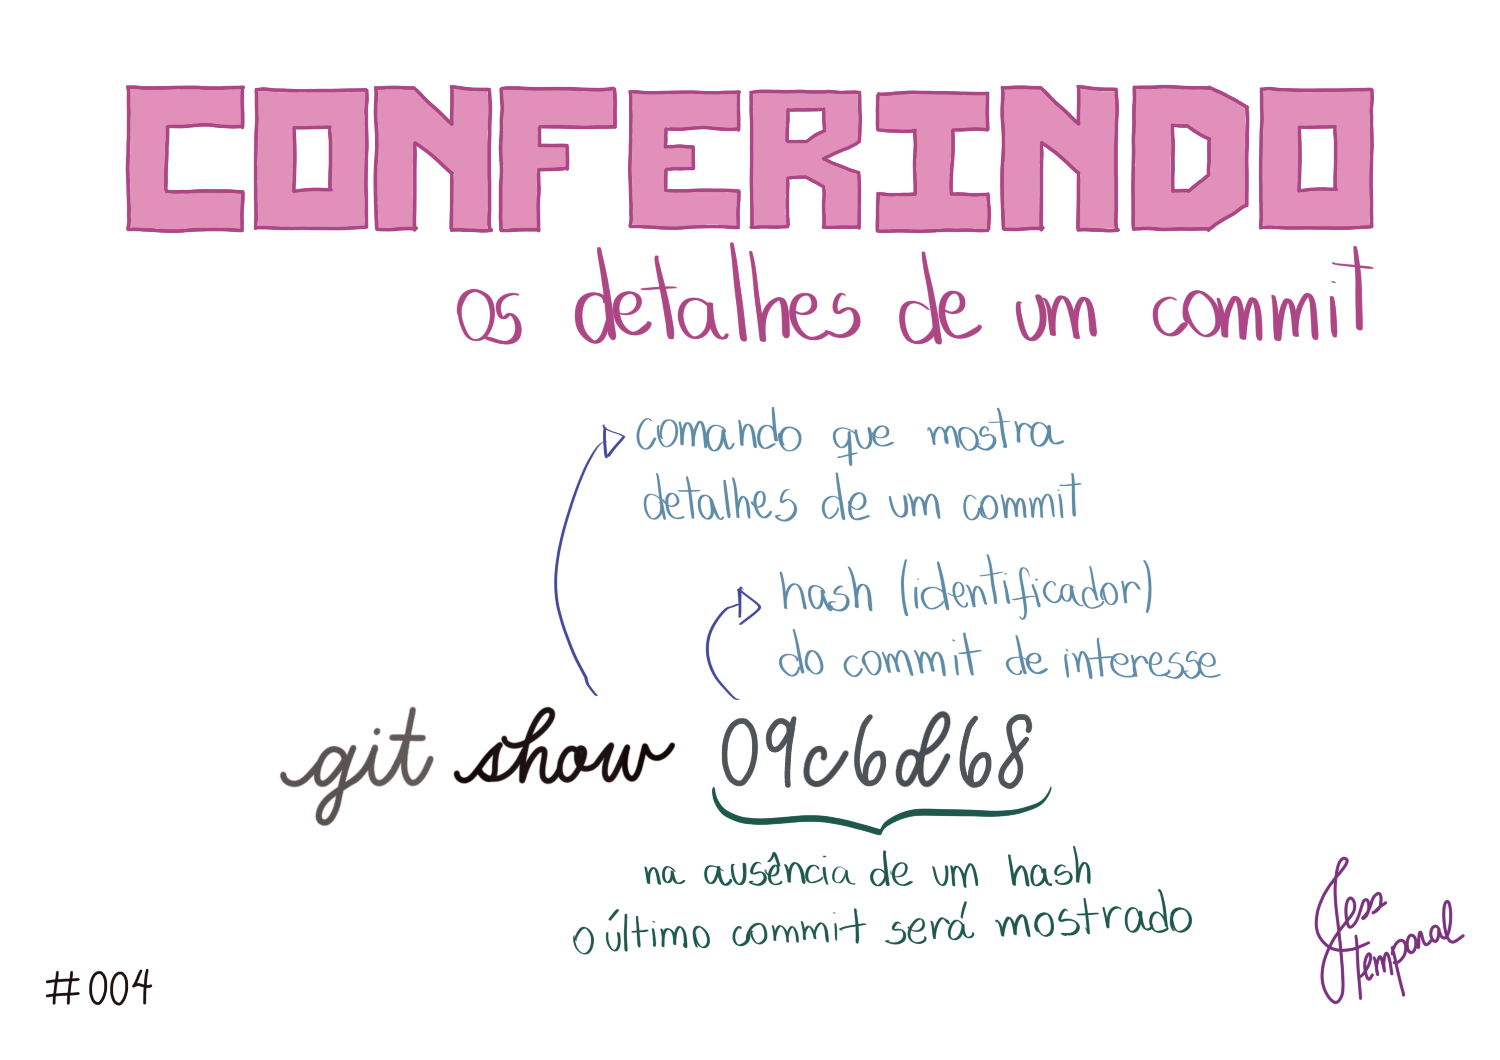 CONFERINDO
os detalhes de um commit
comando que mostra
detalhes de um commit
hash (identificador)
do commit de interesse
git show 09c6d68
na ausência de um hash
o último commit será mostrado
#004
Jess
temporal